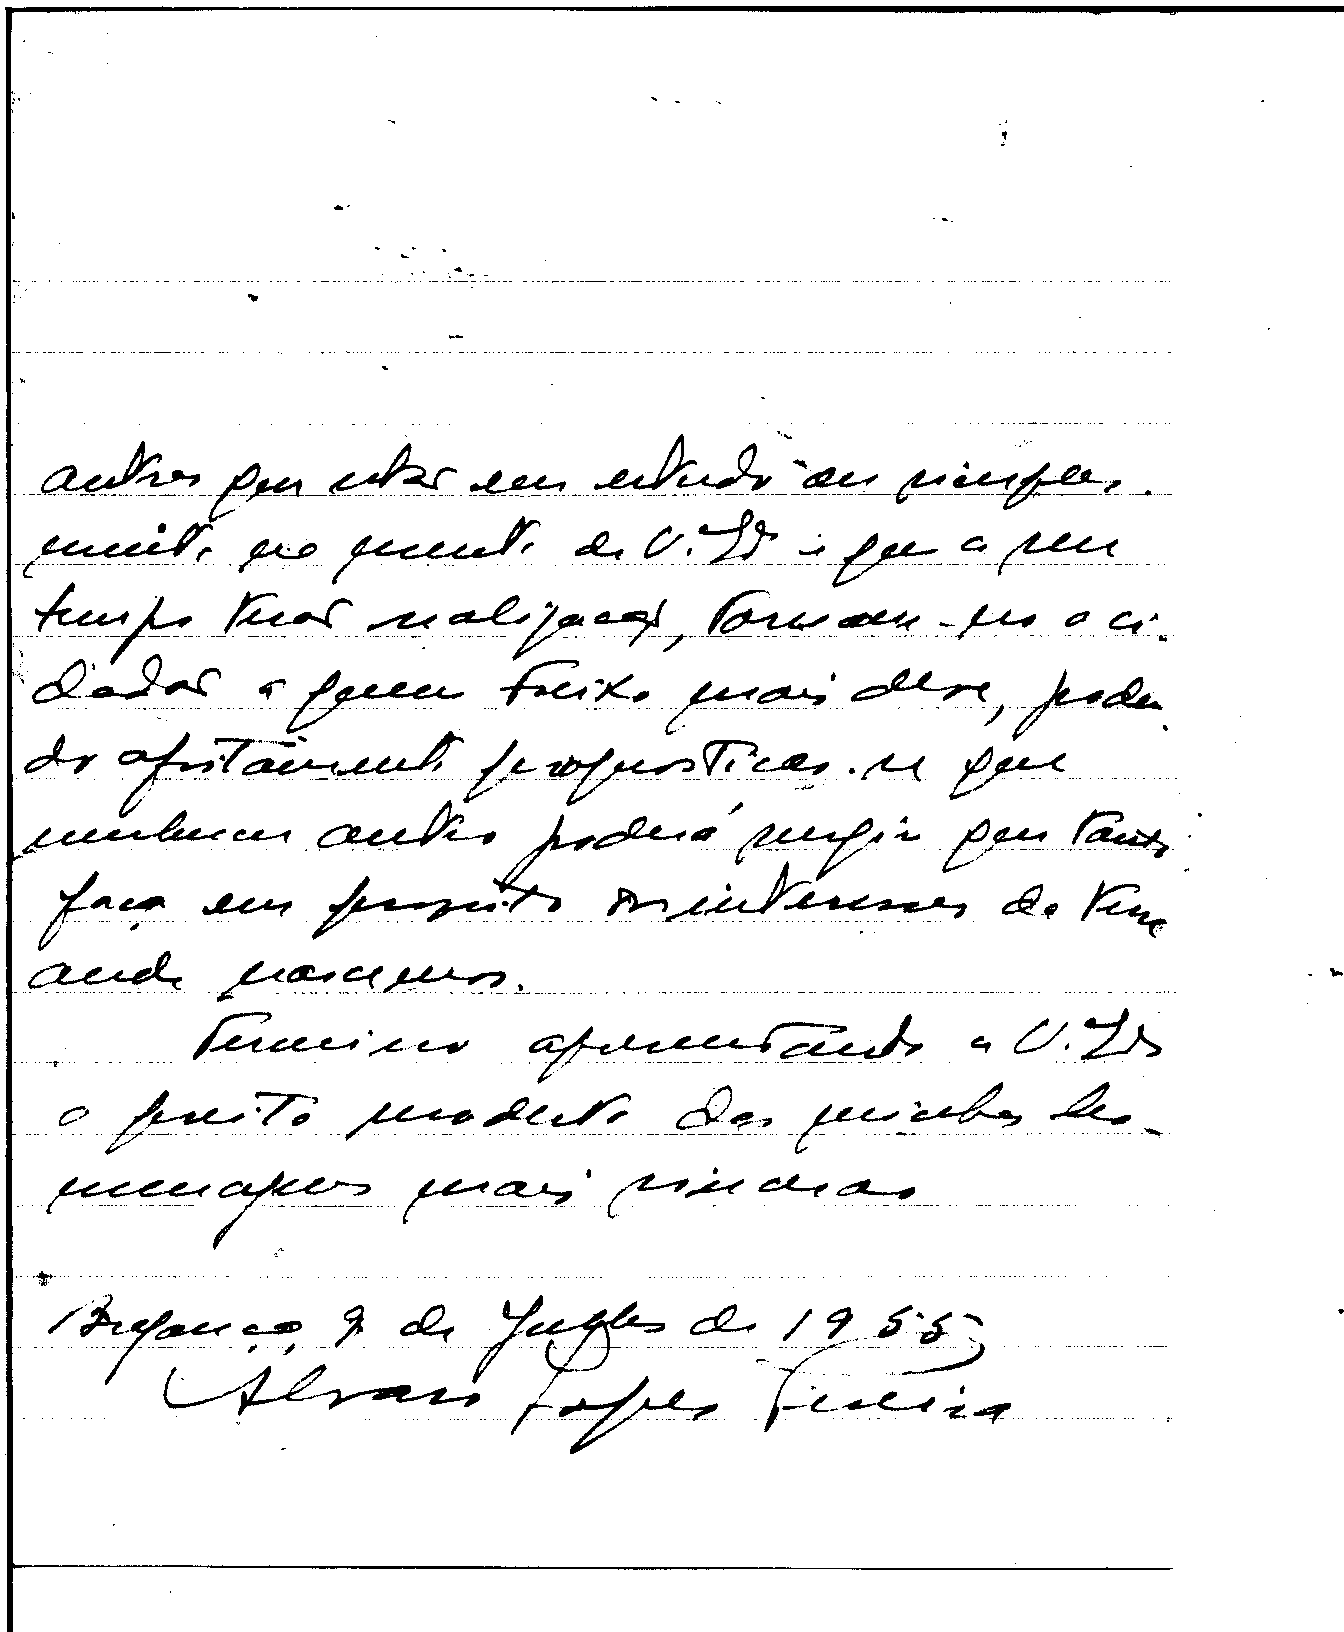 outros que estão em estudo ou simples-
mente na mente de V. Exª e que a seu
tempo terão realização, tornam-no o ci-
dadão a quem Freixo mais deve, poden-
do afoitamente prognosticar-se que
nenhum outro poderá surgir que tanto
faça em proveito dos interesses da terra
onde nascemos.
Termino apresentando a V. Exª
o preito modesto das minhas ho-
menagens mais sinceras
Bragança, 9 de Julho de 1955
Alvaro Lopes Pereira